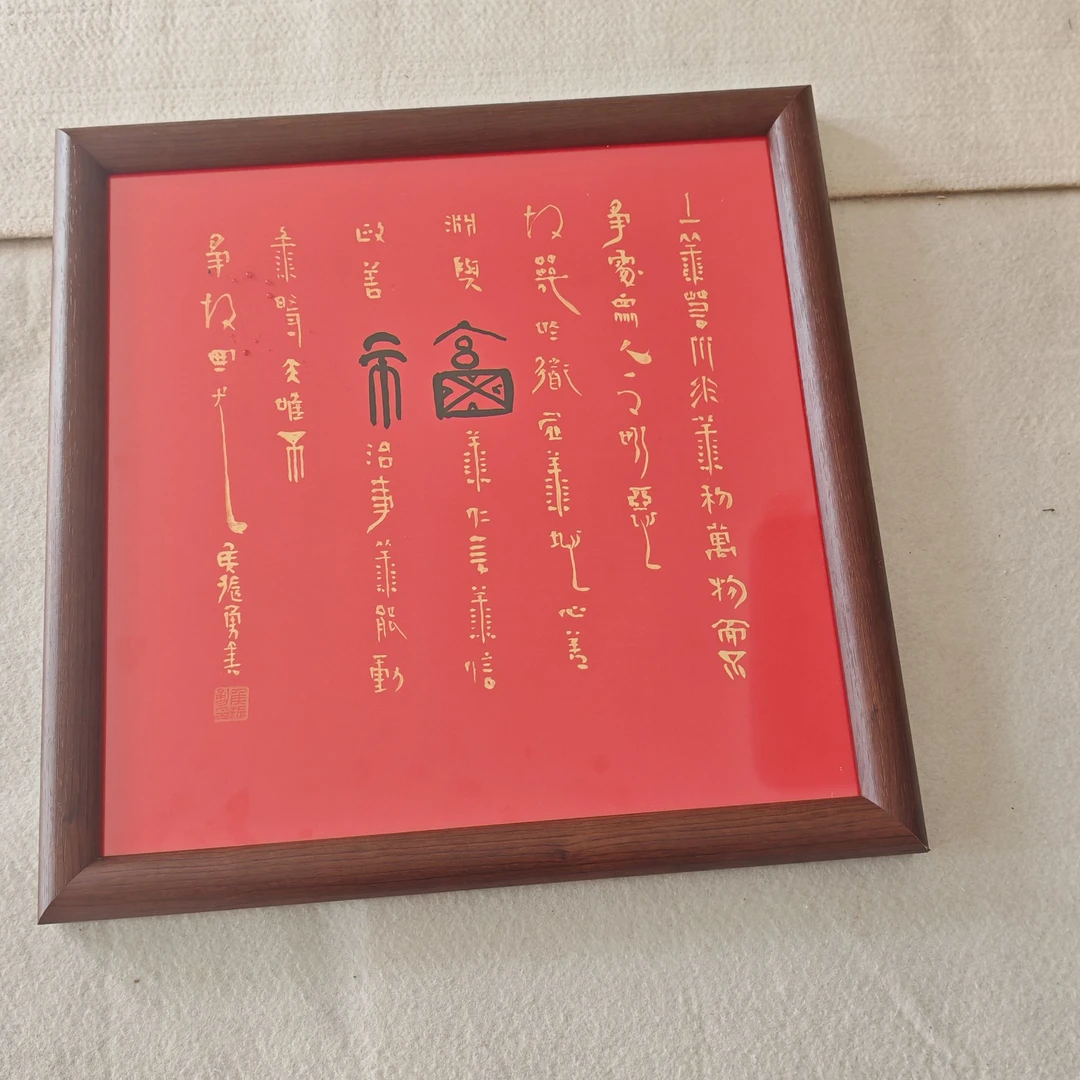 上善若水水善利萬物而不
爭處衆人之所惡
故幾於道居善地心善
淵與善仁言善信
政善治事善能動
善時夫唯不
爭故無尤
侯振勇書
福